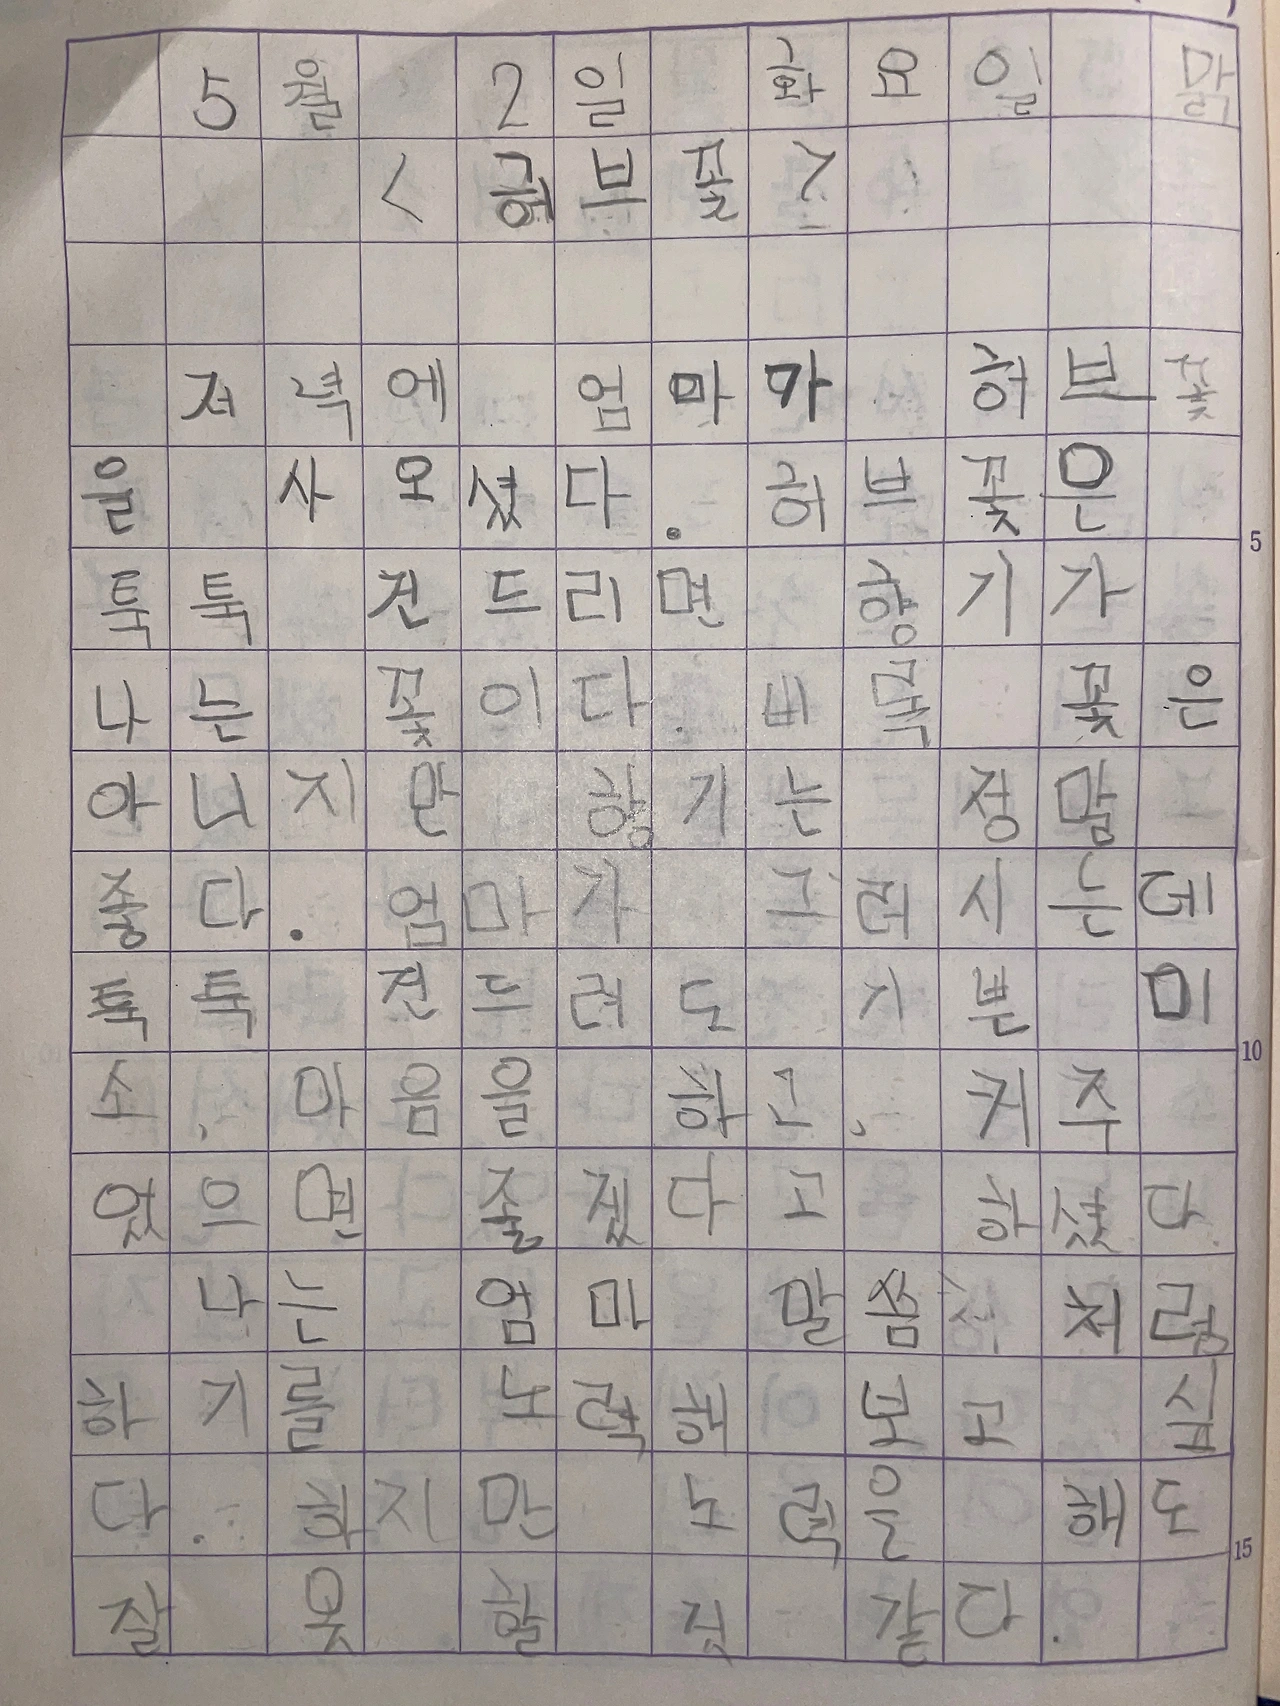 5월 2일 화요일 맑
<허브꽃>
저녁에 엄마가 허브꽃
을 사오셨다. 허브꽃은
툭툭 건드리면 향기가
나는 꽃이다. 비록 꽃은
아니지만 향기는 정말
좋다. 엄마가 그러시는데
툭툭 건드려도 기분 미
소, 마음을 하고, 커주
었으면 좋겠다고 하셨다.
나는 엄마 말씀처럼
하기를 노력해 보고 십
다. 하지만 노력을 해도
잘 못 할 것 같다.